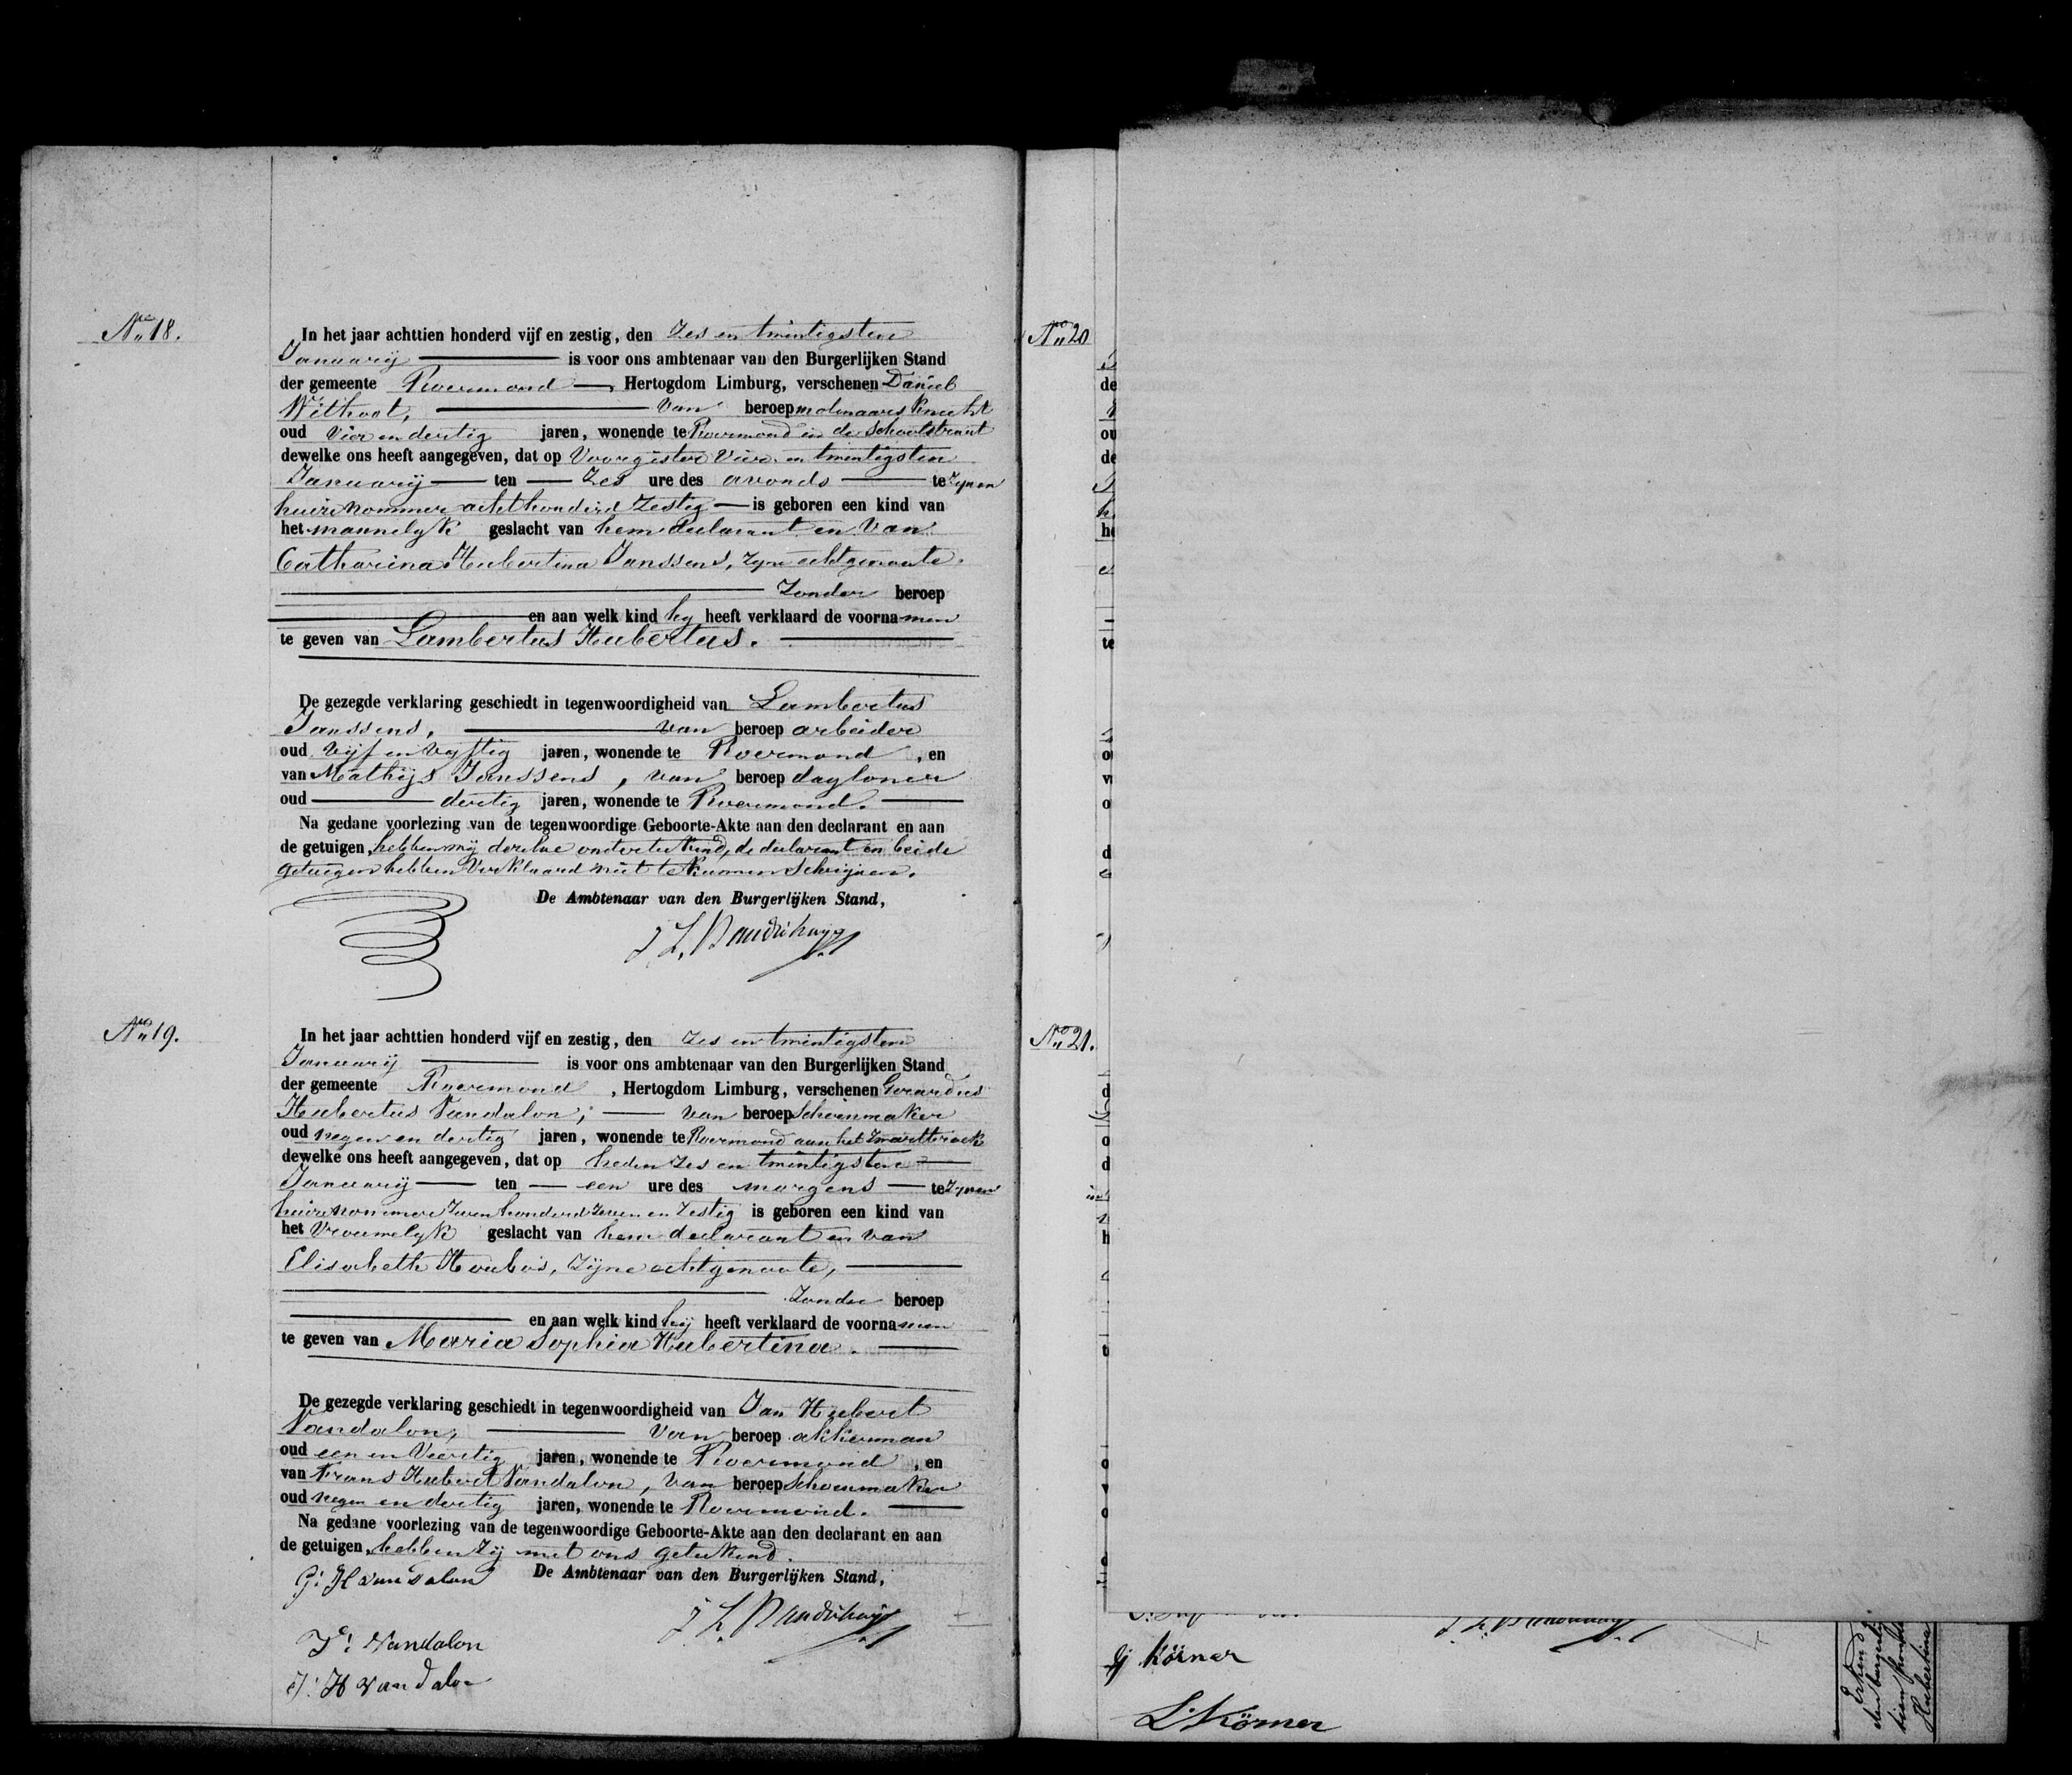 No 18.
In het jaar achttien honderd vijf en zestig, den zes en twintigsten
Januarij is voor ons ambtenaar van den Burgerlijken Stand
der gemeente Roermond, Hertogdom Limburg, verschenen Daniel
Withoot, van beroep molenaars knecht
oud vier en dertig jaren, wonende te Roermond in de Schoolstraat
dewelke ons heeft aangegeven, dat op voorgister vier en twintigsten
Januarij ten zes ure des avonds te zynen
huize nommer achthonderd zestig is geboren een kind van
het mannelyk geslacht van hem declarant en van
Catharina Hubertina Janssens, zyne echtgenoote.
Zonder beroep
en aan welk kind hy heeft verklaard de voornamen
te geven van Lambertus Hubertus.
De gezegde verklaring geschiedt in tegenwoordigheid van Lambertus
Janssens, van beroep arbeider
oud vijf en vyftig jaren, wonende te Roermond, en
van Mathijs Janssens, van beroep dagloner
oud dertig jaren, wonende te Roermond.
Na gedane voorlezing van de tegenwoordige Geboorte-Akte aan den declarant en aan
de getuigen, hebben wij dezelve onderteekend, de declarant en beide
getuigen hebben verklaard niet te kunnen schrijven.
De Ambtenaar van den Burgerlijken Stand,
No 19.
In het jaar achttien honderd vijf en zestig, den zes en twintigsten
Januarij is voor ons ambtenaar van den Burgerlijken Stand
der gemeente Roermond, Hertogdom Limburg, verschenen Gerardus
Hubertus Vandalon, van beroep Schoenmaker
oud negen en dertig jaren, wonende te Roermond aan het Zwartbroek
dewelke ons heeft aangegeven, dat op heden zes en twintigsten
Januarij ten een ure des morgens te zynen
huize nommer zeven honderd zeven en zestig is geboren een kind van
het vrouwelyk geslacht van hem declarant en van
Elisabeth Houbos, zijne echtgenoote,
Zonder beroep
en aan welk kind hij heeft verklaard de voornamen
te geven van Maria Sophia Hubertina.
De gezegde verklaring geschiedt in tegenwoordigheid van Jan Hubert
Vandalon, van beroep akkerman
oud een en veertig jaren, wonende te Roermond, en
van Frans Hubert Vandalon, van beroep Schoenmaker
oud negen en dertig jaren, wonende te Roermond.
Na gedane voorlezing van de tegenwoordige Geboorte-Akte aan den declarant en aan
de getuigen, hebben zij met ons geteekend.
G: H vandalon De Ambtenaar van den Burgerlijken Stand,
Vandalon
H vandalon
No 20
de
ou
de
te
No 21.
Körner
L: Körner
Hubertina